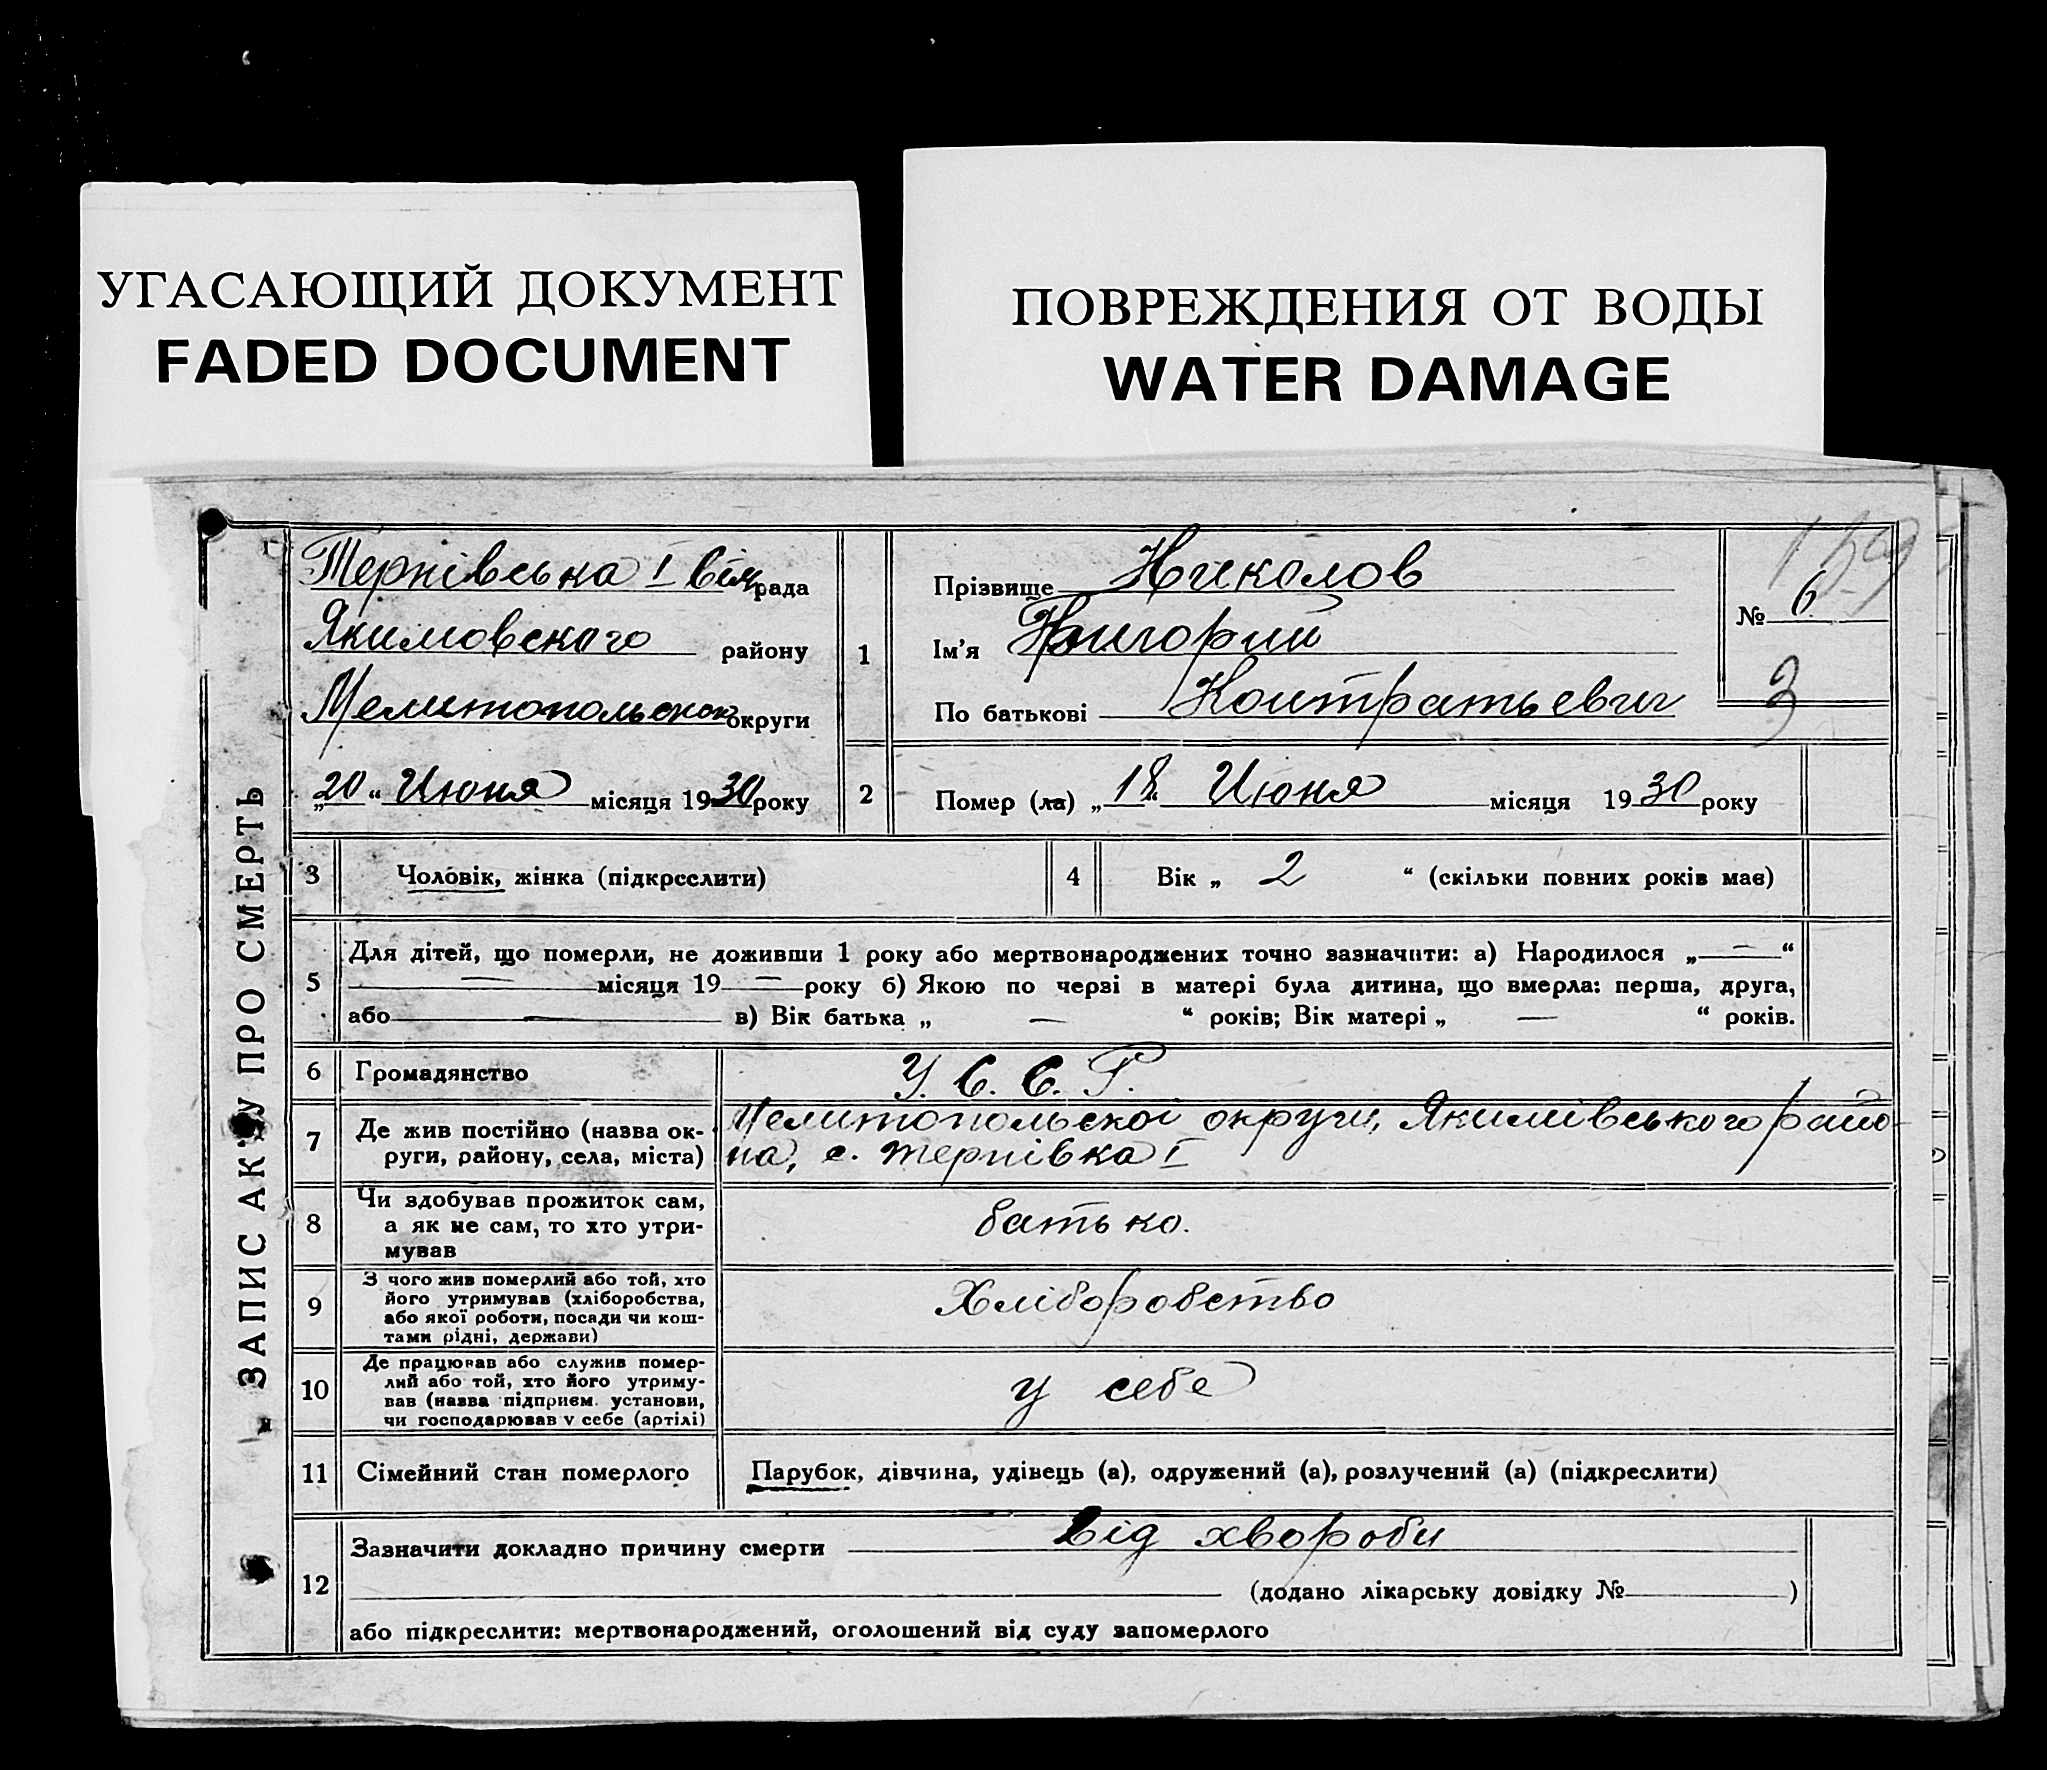 УГАСАЮЩИЙ ДОКУМЕНТ
FADED DOCUMENT
ПОВРЕЖДЕНИЯ ОТ ВОДЫ
WATER DAMAGE
ЗАПИС АКТУ ПРО СМЕРТЬ
Тернівська I рада
Якимовского району
Мелитопольской округи
„20“ Июня місяця 1930 року
1
Прізвище Николов
Ім'я Григорий
По батькові Контратьевич
159
№ 6
3
2
Помер (ла) „18“ Июня місяця 1930 року
3
Чоловік, жінка (підкреслити)
4
Вік „ 2 “ (скільки повних років має)
5
Для дітей, що померли, не доживши 1 року або мертвонароджених точно зазначити: а) Народилося „ — “
— місяця 19 — року б) Якою по черзі в матері була дитина, що вмерла: перша, друга,
або — в) Вік батька „ — “ років; Вік матері „ — “ років.
6
Громадянство
У. С. С. Р.
7
Де жив постійно (назва ок-
руги, району, села, міста)
Мелитопольскоі округи, Якимівського райо-
на, с. Тернівка I
8
Чи здобував прожиток сам,
а як не сам, то хто утри-
мував
батько.
9
З чого жив померлий або той, хто
його утримував (хліборобства,
або якої роботи, посади чи кош-
тами рідні, держави)
Хлібороб­ство
10
Де працював або служив помер-
лий або той, хто його утриму-
вав (назва підприєм. установи,
чи господарював у себе (артілі)
у себе
11
Сімейний стан померлого
Парубок, дівчина, удівець (а), одружений (а), розлучений (а) (підкреслити)
12
Зазначити докладно причину смерти Від хвороби
(додано лікарську довідку № )
або підкреслити: мертвонароджений, оголошений від суду запомерлого